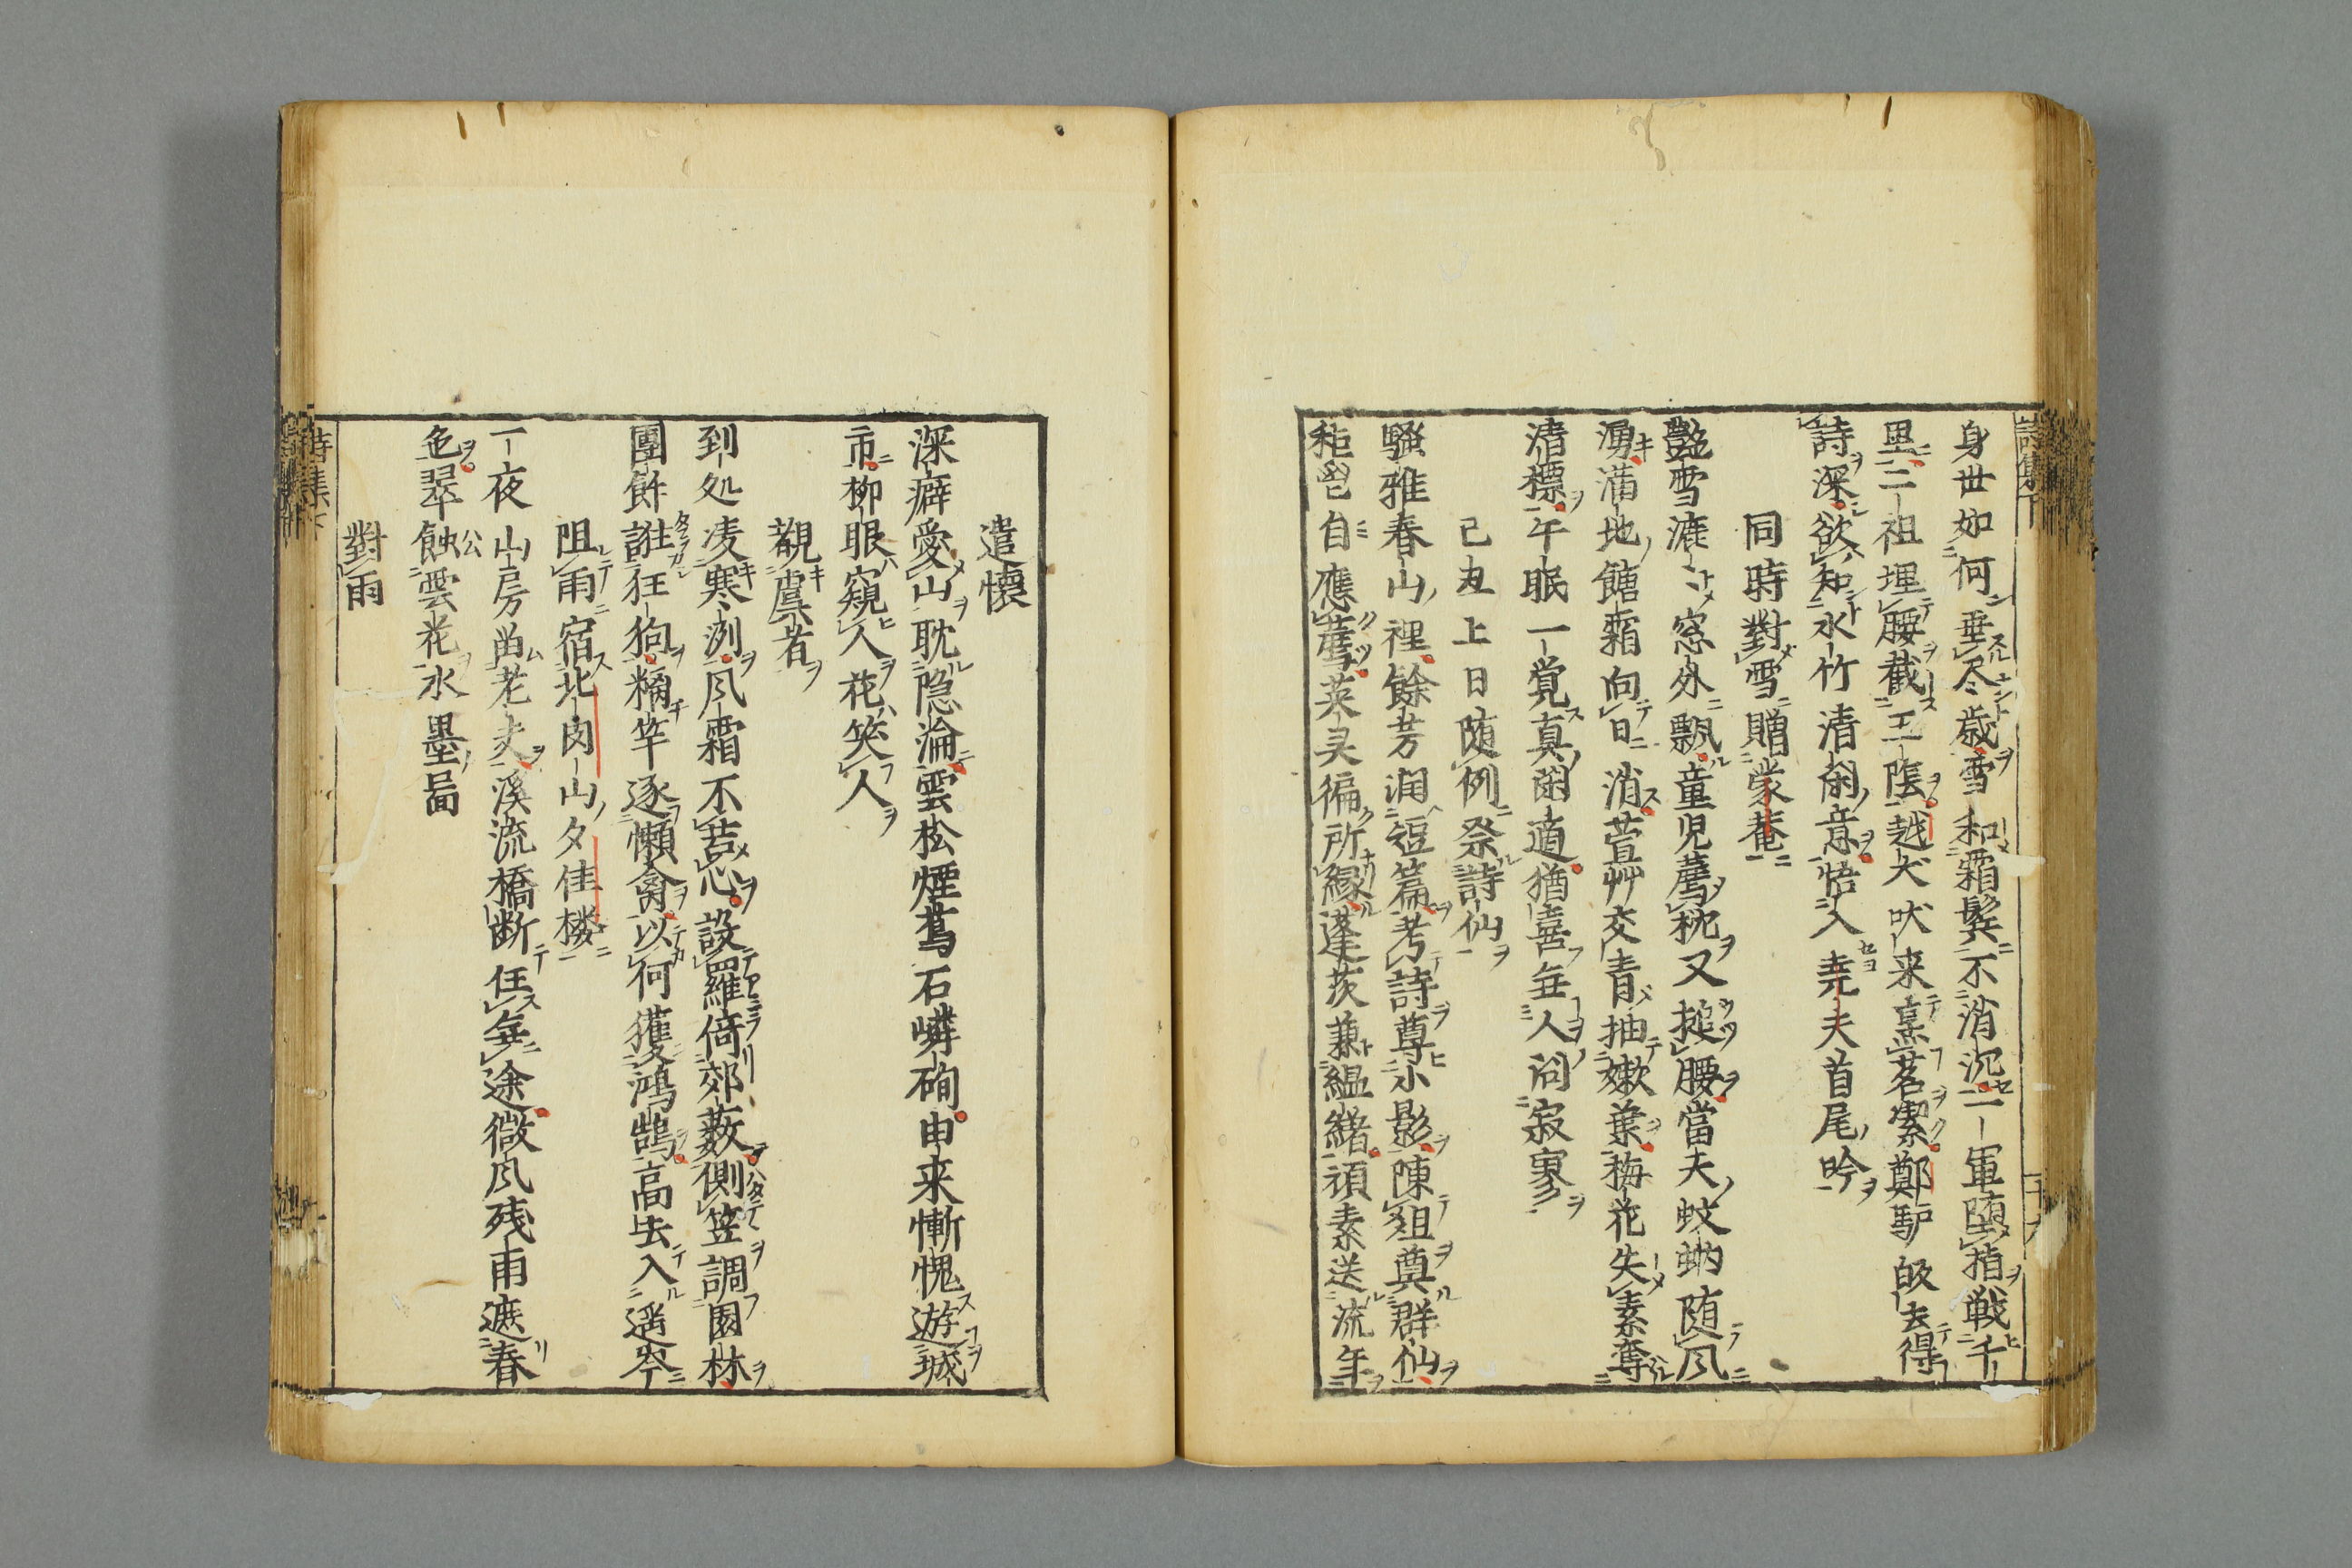 身世如何垂尽歳雪和霜鬂不消沉一軍堕指戦千
里二祖埋腰截三陰越犬吠来烹茗潔鄭驴𢻃去得
詩深欲知水竹清閑意悟入尭夫首尾吟
同時對雪贈蒙菴
豔雪漉〻窓外飄童児蔫枕又搥腰當夫蚊蚋随風
湧滿地餹霜向日消萱艸交青抽嫩葉梅花失素奪
清標午眠一覚真閑適猶喜無人问寂寥
己丑上日随例祭詩仙
騒雅春山裡餘芳润逗篇考詩尊小影陳俎奠群仙
秬鬯自應蔫英灵徧所縁蓬茨兼緼緒頑素送流年
遣懐
深癖愛山耽隐淪雲松煙蔦石嶙峋申来慚愧遊城
市柳眼窺人花笑人
觀虞者
到処凌寒冽風霜不苦心設羅倚郊薮側笠調園林
團餅誰狂狗糯竿逐懶禽以何獲鴻鵠高去入遥岑
阻雨宿北肉山夕佳楼
一夜山房畄老夫溪流橋断任無途微風残雨遮春
色翠蝕雲花水墨啚
對雨